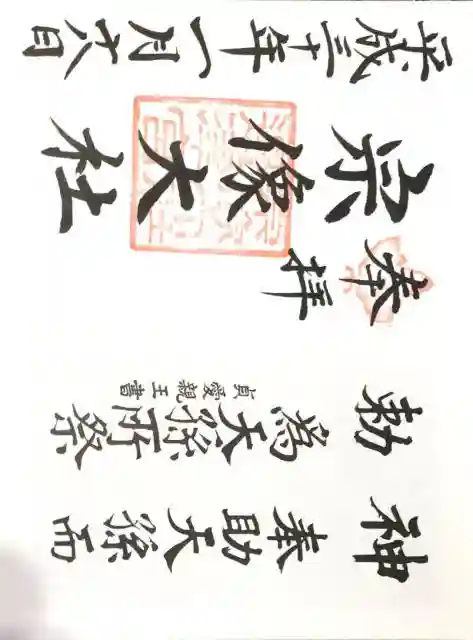 神 奉助天孫而
勅 為天孫所祭
貞愛親王書
奉拝
宗像大社
平成三十年一月六日